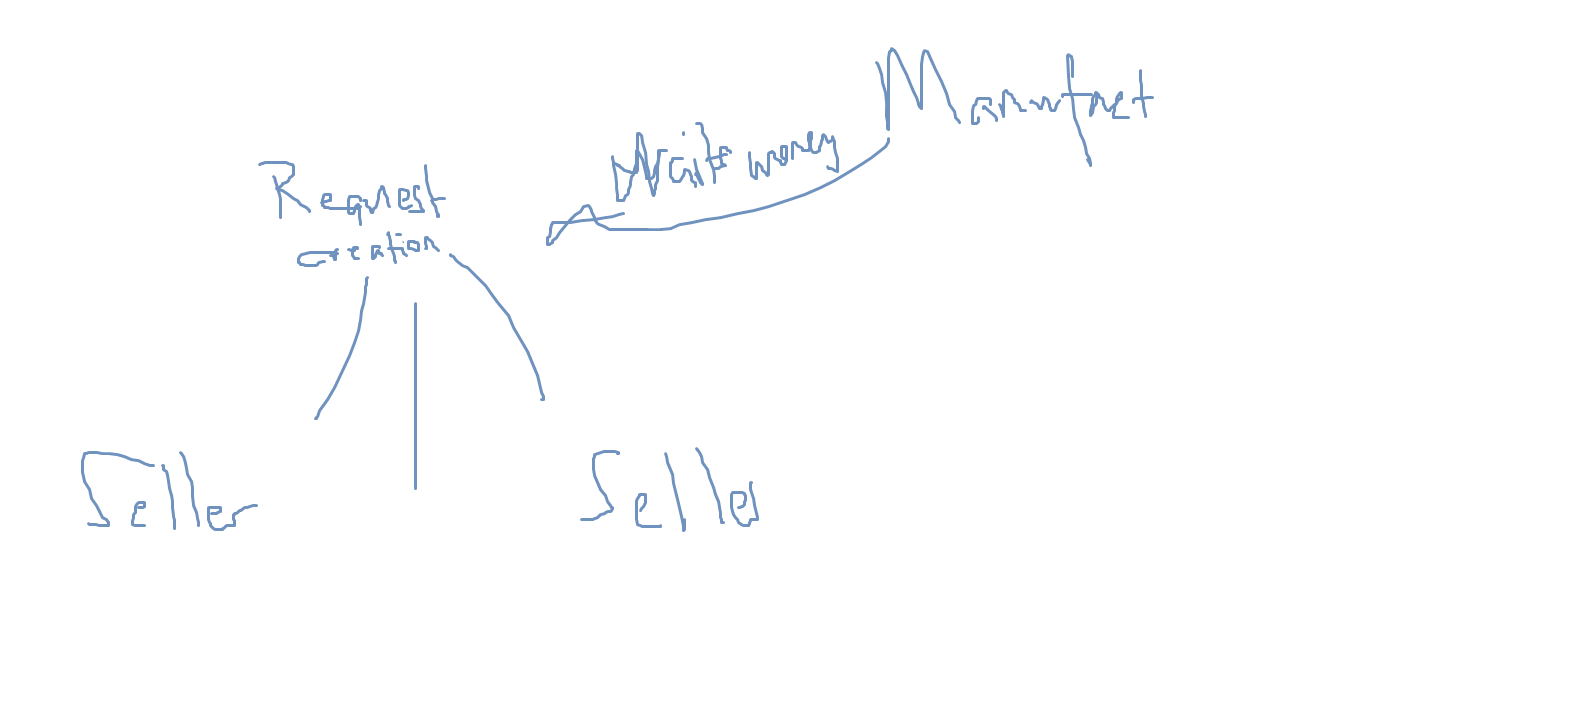 Manufact
Waits money
Request
creation
Seller
Seller